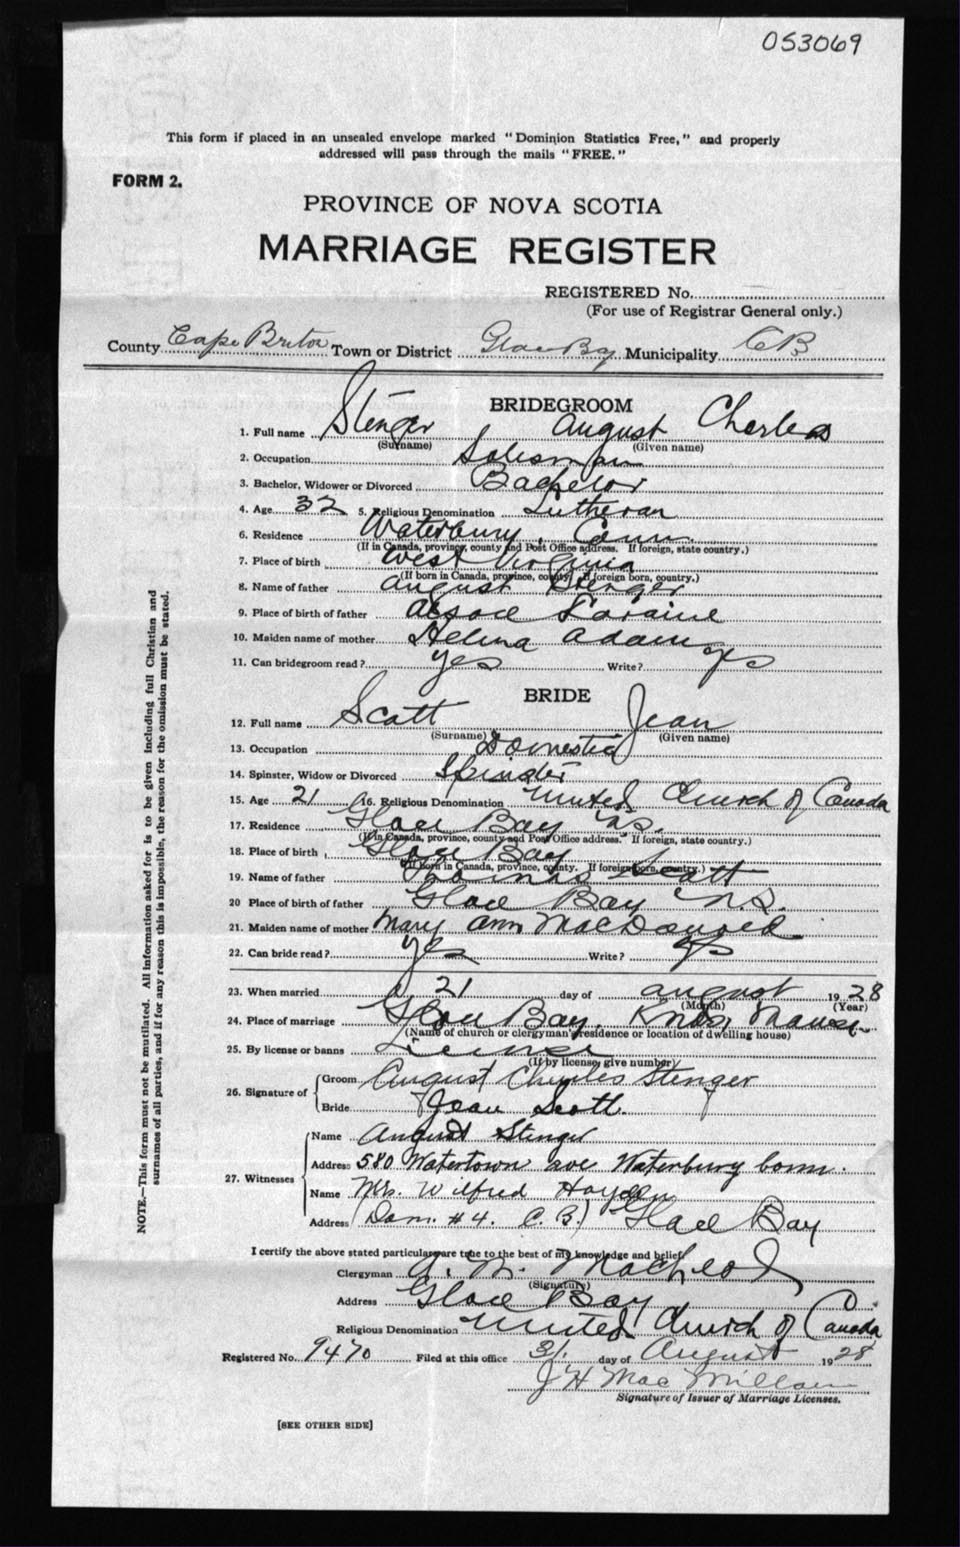 053069
This form if placed in an unsealed envelope marked "Dominion Statistics Free," and properly
addressed will pass through the mails "FREE."
FORM 2.
PROVINCE OF NOVA SCOTIA
MARRIAGE REGISTER
REGISTERED No.
(For use of Registrar General only.)
County Cape Breton Town or District Glace Bay Municipality C B
BRIDEGROOM
1. Full name Stenger August Charles
(Surname) (Given name)
2. Occupation Salesman
3. Bachelor, Widower or Divorced Bachelor
4. Age 32 5. Religious Denomination Lutheran
6. Residence Waterbury, Conn.
(If in Canada, province, county and Post Office address. If foreign, state country.)
7. Place of birth West Virginia
(If born in Canada, province, county. If foreign born, country.)
8. Name of father August Stenger
9. Place of birth of father Alsace Loraine
10. Maiden name of mother Helena Adam
11. Can bridegroom read? yes Write? yes
BRIDE
12. Full name Scott Jean
(Surname) (Given name)
13. Occupation Domestic
14. Spinster, Widow or Divorced Spinster
15. Age 21 16. Religious Denomination United Church of Canada
17. Residence Glace Bay N.S.
(If in Canada, province, county and Post Office address. If foreign, state country.)
18. Place of birth Glace Bay
(If born in Canada, province, county. If foreign born, country.)
19. Name of father Thomas Scott
20 Place of birth of father Glace Bay N.S.
21. Maiden name of mother Mary Ann MacDonald
22. Can bride read? yes Write? yes
23. When married 21 day of August 1928
(Month) (Year)
24. Place of marriage Glace Bay, Knox Manse
(Name of church or clergyman's residence or location of dwelling house)
25. By license or banns License
(If by license, give number)
26. Signature of Groom August Charles Stenger
Bride Jean Scott
27. Witnesses
Name August Stenger
Address 580 Watertown ave Waterbury Conn.
Name Mrs. Wilfred Hayden
Address (Dom. #4. C. B.) Glace Bay
I certify the above stated particulars are true to the best of my knowledge and belief.
Clergyman A. M. MacLeod
(Signature)
Address Glace Bay C.
Religious Denomination United Church of Canada
Registered No. 9470 Filed at this office 31. day of August 1928
J H MacMillan
Signature of Issuer of Marriage Licenses.
[SEE OTHER SIDE]
NOTE.—This form must not be mutilated. All information asked for is to be given including full Christian and
surnames of all parties, and if for any reason this is impossible, the reason for the omission must be stated.